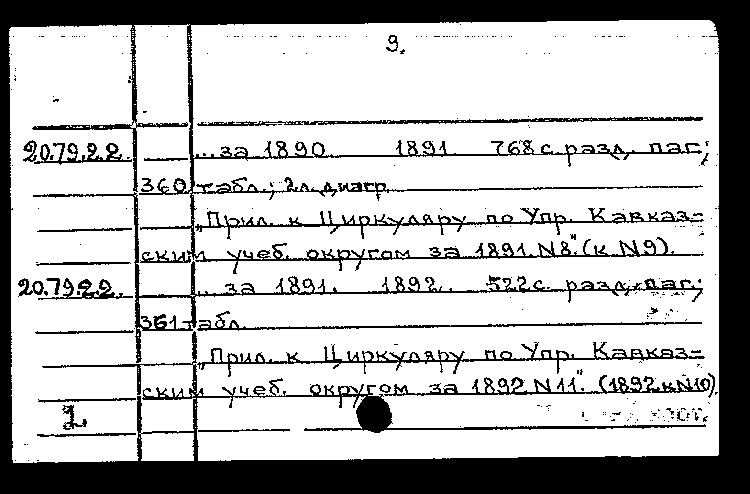 9.
20.79.22. ..за 1890 1891 768 с. разд. паг;
360 табл.; 2 л. диагр
„Прил. к Циркуляру по Упр. Кавказ-
ским учеб. округом за 1891. N8". (к N9).
20.79.22. .. за 1891. 1892. 522 с. разд. паг.;
351 табл.
„Прил. к Циркуляру по Упр. Кавказ-
ским учеб. округом за 1892 N11". (1892 к N10).
2